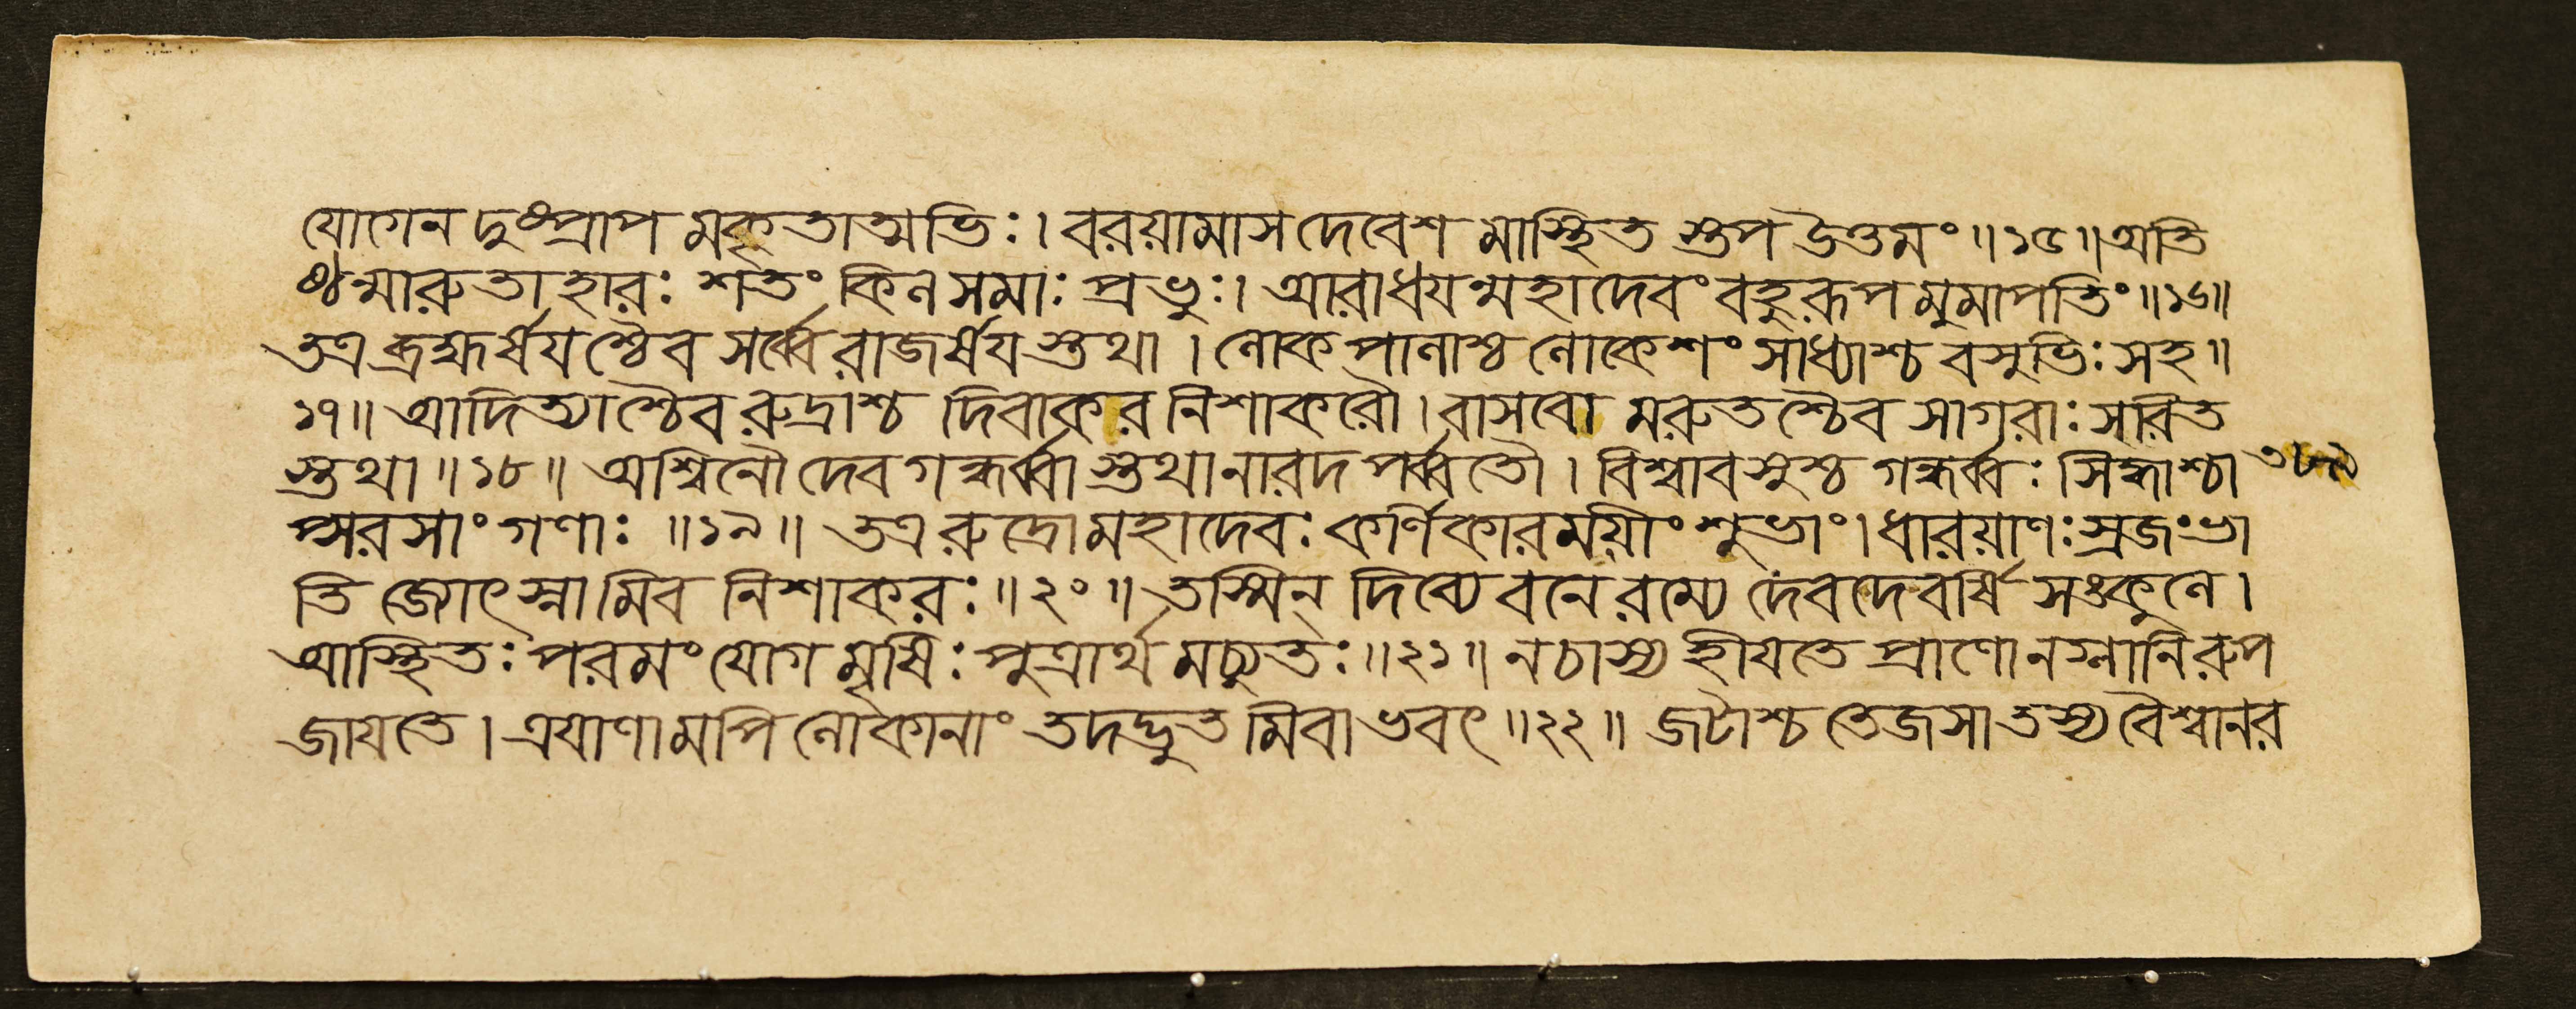 যোগেন দুঃপ্রাপ মকৃতাত্মভিঃ। বরয়ামাস দেবেশ মাস্থিত স্তপ উত্তমং॥১৫॥অতি
ষ্ঠন্মারুতাহারঃ শতং কিল সমাঃ প্রভুঃ। আরাধযন্মহাদেবং বহুরূপ মুমাপতিং॥১৬॥
তত্র ব্রহ্মর্ষযশ্চৈব সর্ব্বে রাজর্ষয স্তথা । লোকপালাশ্চ লোকেশং সাধ্যাশ্চ বসুভিঃ সহ॥
১৭॥ আদিত্যাশ্চৈব রুদ্রাশ্চ দিবাকর নিশাকরৌ। বাসবো মরুতশ্চৈব সাগরাঃ সরিত
স্তথা॥১৮॥ অশ্বিনৌ দেব গন্ধর্ব্বা স্তথা নারদ পর্ব্বতৌ। বিশ্বাবসুশ্চ গন্ধর্ব্বঃ সিদ্ধাশ্চা
প্সরসাং গণাঃ ॥১৯॥ তত্র রুদ্রো মহাদেবঃ কর্ণিকারময়ীং শুভাং। ধারয়াণঃ স্রজং ভা
তি জ্যোৎস্নামিব নিশাকরঃ॥২০॥ তস্মিন্ দিব্যে বনে রম্যে দেবদেবর্ষি সঙ্কুলে।
আস্থিতঃ পরমং যোগ মৃষিঃ পুত্রার্থ মচ্যুতঃ॥২১॥ ন চাস্য হীযতে প্রাণো ন গ্লানি রুপ
জাযতে। ত্রযাণামপি লোকানাং তদদ্ভুত মিবাভবৎ॥২২॥ জটাশ্চ তেজসা তস্য বৈশ্বানর